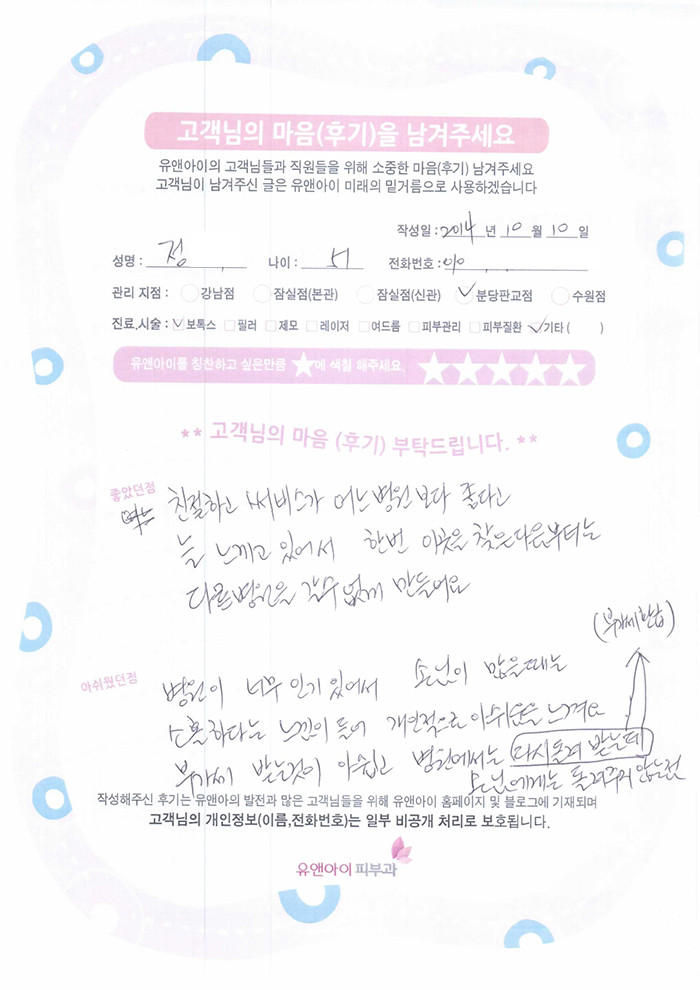 고객님의 마음(후기)을 남겨주세요
유앤아이의 고객님들과 직원들을 위해 소중한 마음(후기) 남겨주세요
고객님이 남겨주신 글은 유앤아이 미래의 밑거름으로 사용하겠습니다
작성일 : 2014 년 10 월 10 일
성명 : 정 나이 : 51 전화번호 : 010
관리 지점 : 강남점 잠실점(본관) 잠실점(신관) 분당판교점 수원점
진료,시술 : 보톡스 필러 제모 레이저 여드름 피부관리 피부질환 기타 ( )
유앤아이를 칭찬하고 싶은만큼 ★에 색칠 해주세요. ★★★★★
** 고객님의 마음 (후기) 부탁드립니다. **
좋았던점
친절하고 써비스가 어느병원보다 좋다고
늘 느끼고 있어서 한번 이곳을 찾은다음부터는
다른병원을 갈수 없게 만들어요
(부가세환납)
아쉬웠던점
병원이 너무 인기 있어서 손님이 많을때는
소홀하다는 느낌이 들어 개인적으로 아쉬움을 느껴요
부가세 받는것이 아쉽고 병원에서는 다시돌려 받는데
손님에게는 돌려주지 않는건
작성해주신 후기는 유앤아의 발전과 많은 고객님들을 위해 유앤아이 홈페이지 및 블로그에 기재되며
고객님의 개인정보(이름,전화번호)는 일부 비공개 처리로 보호됩니다.
유앤아이 피부과